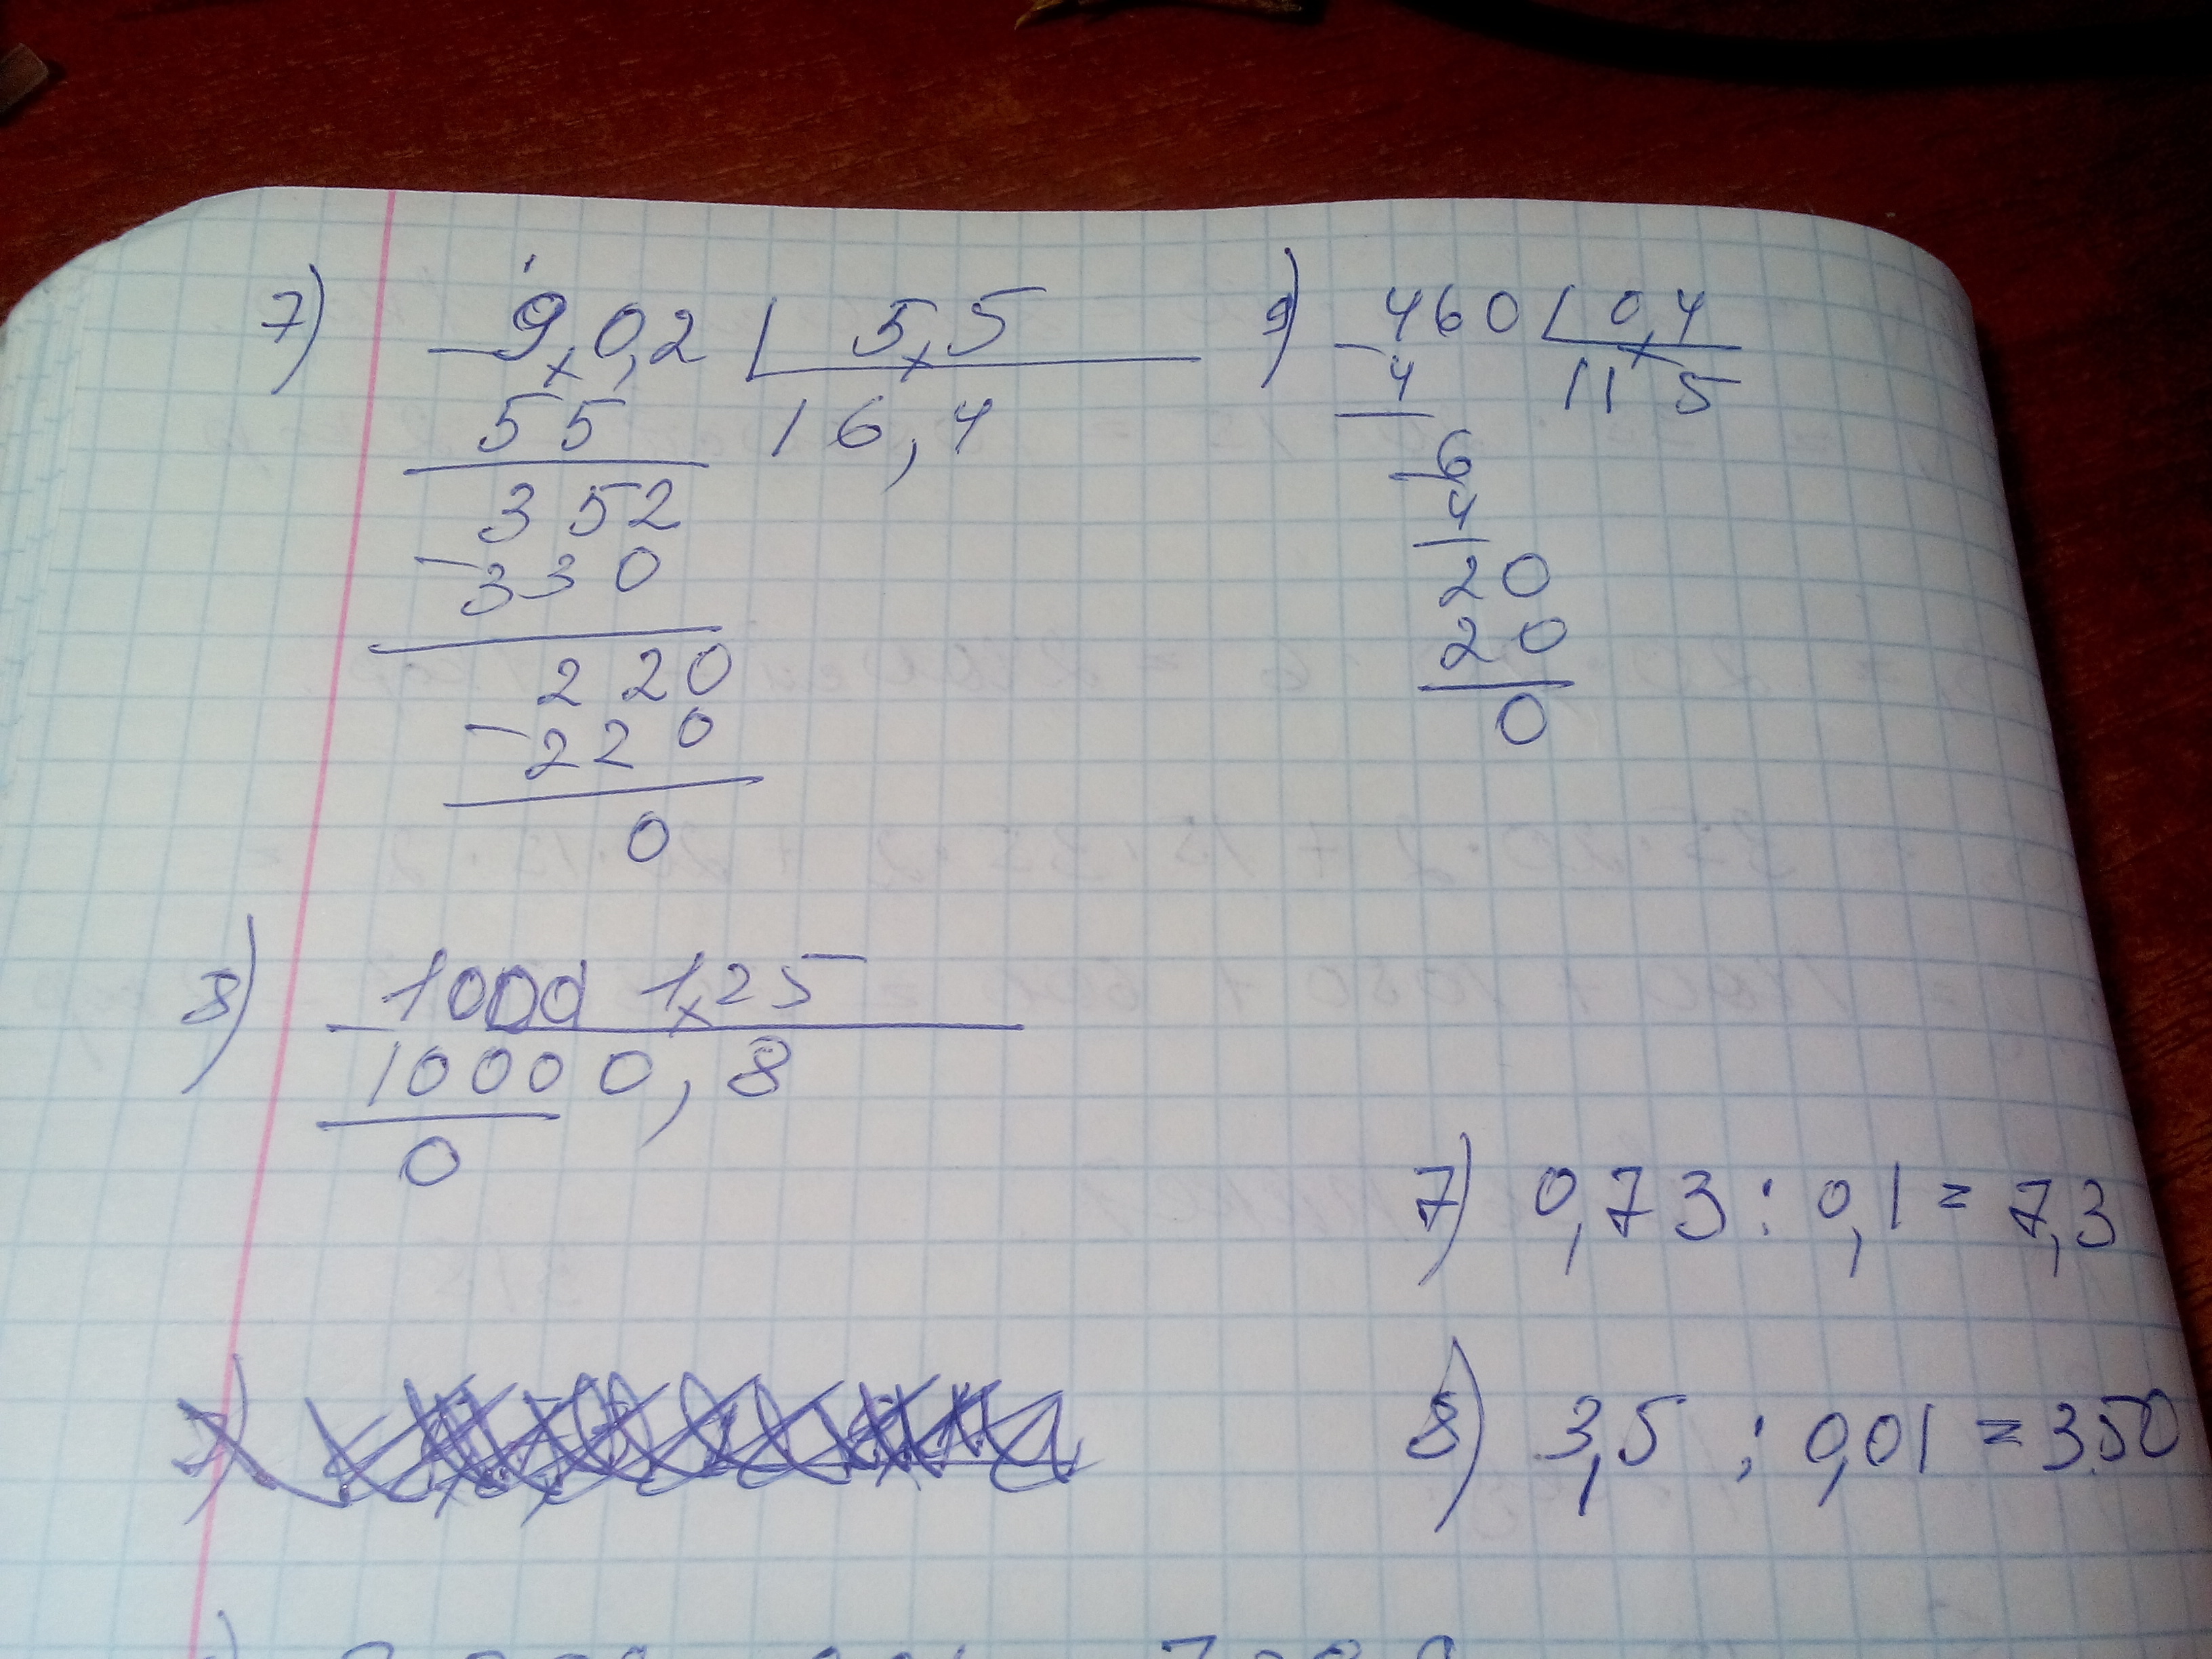 7) 9,0,2 | 5,5
55 16,4
352
330
220
220
0
9) 460 | 0,4
4 115
6
4
20
20
0
8) 1000 1,25
1000 0,8
0
7) 0,73 : 0,1 = 7,3
8) 3,5 : 0,01 = 350